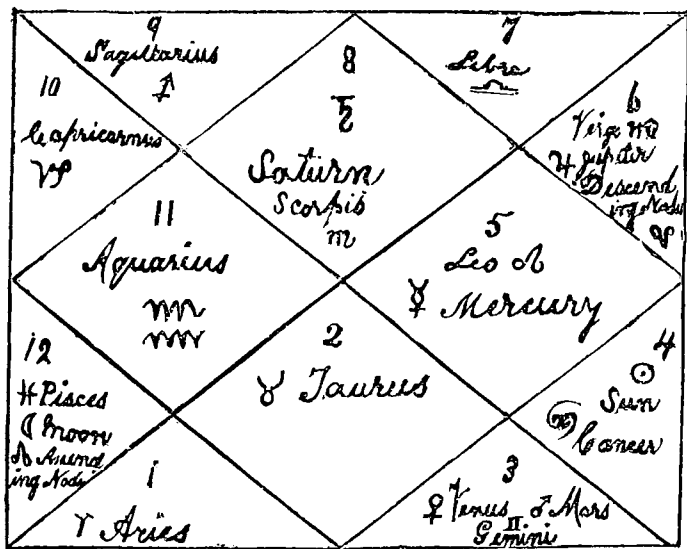 9
Sagittarius
♐
8
♄
Saturn
Scorpio
♏
7
Libra
♎
10
Capricornus
♑
6
Virgo ♍
♃ Jupiter
Descend
ing Node
☋
11
Aquarius
♒
5
Leo ♌
☿ Mercury
12
♓ Pisces
☾ Moon
☊ Asend
ing Node
2
♉ Taurus
4
☉
Sun
♋
Cancer
1
♈ Aries
3
♀ Venus ♂ Mars
♊
Gemini